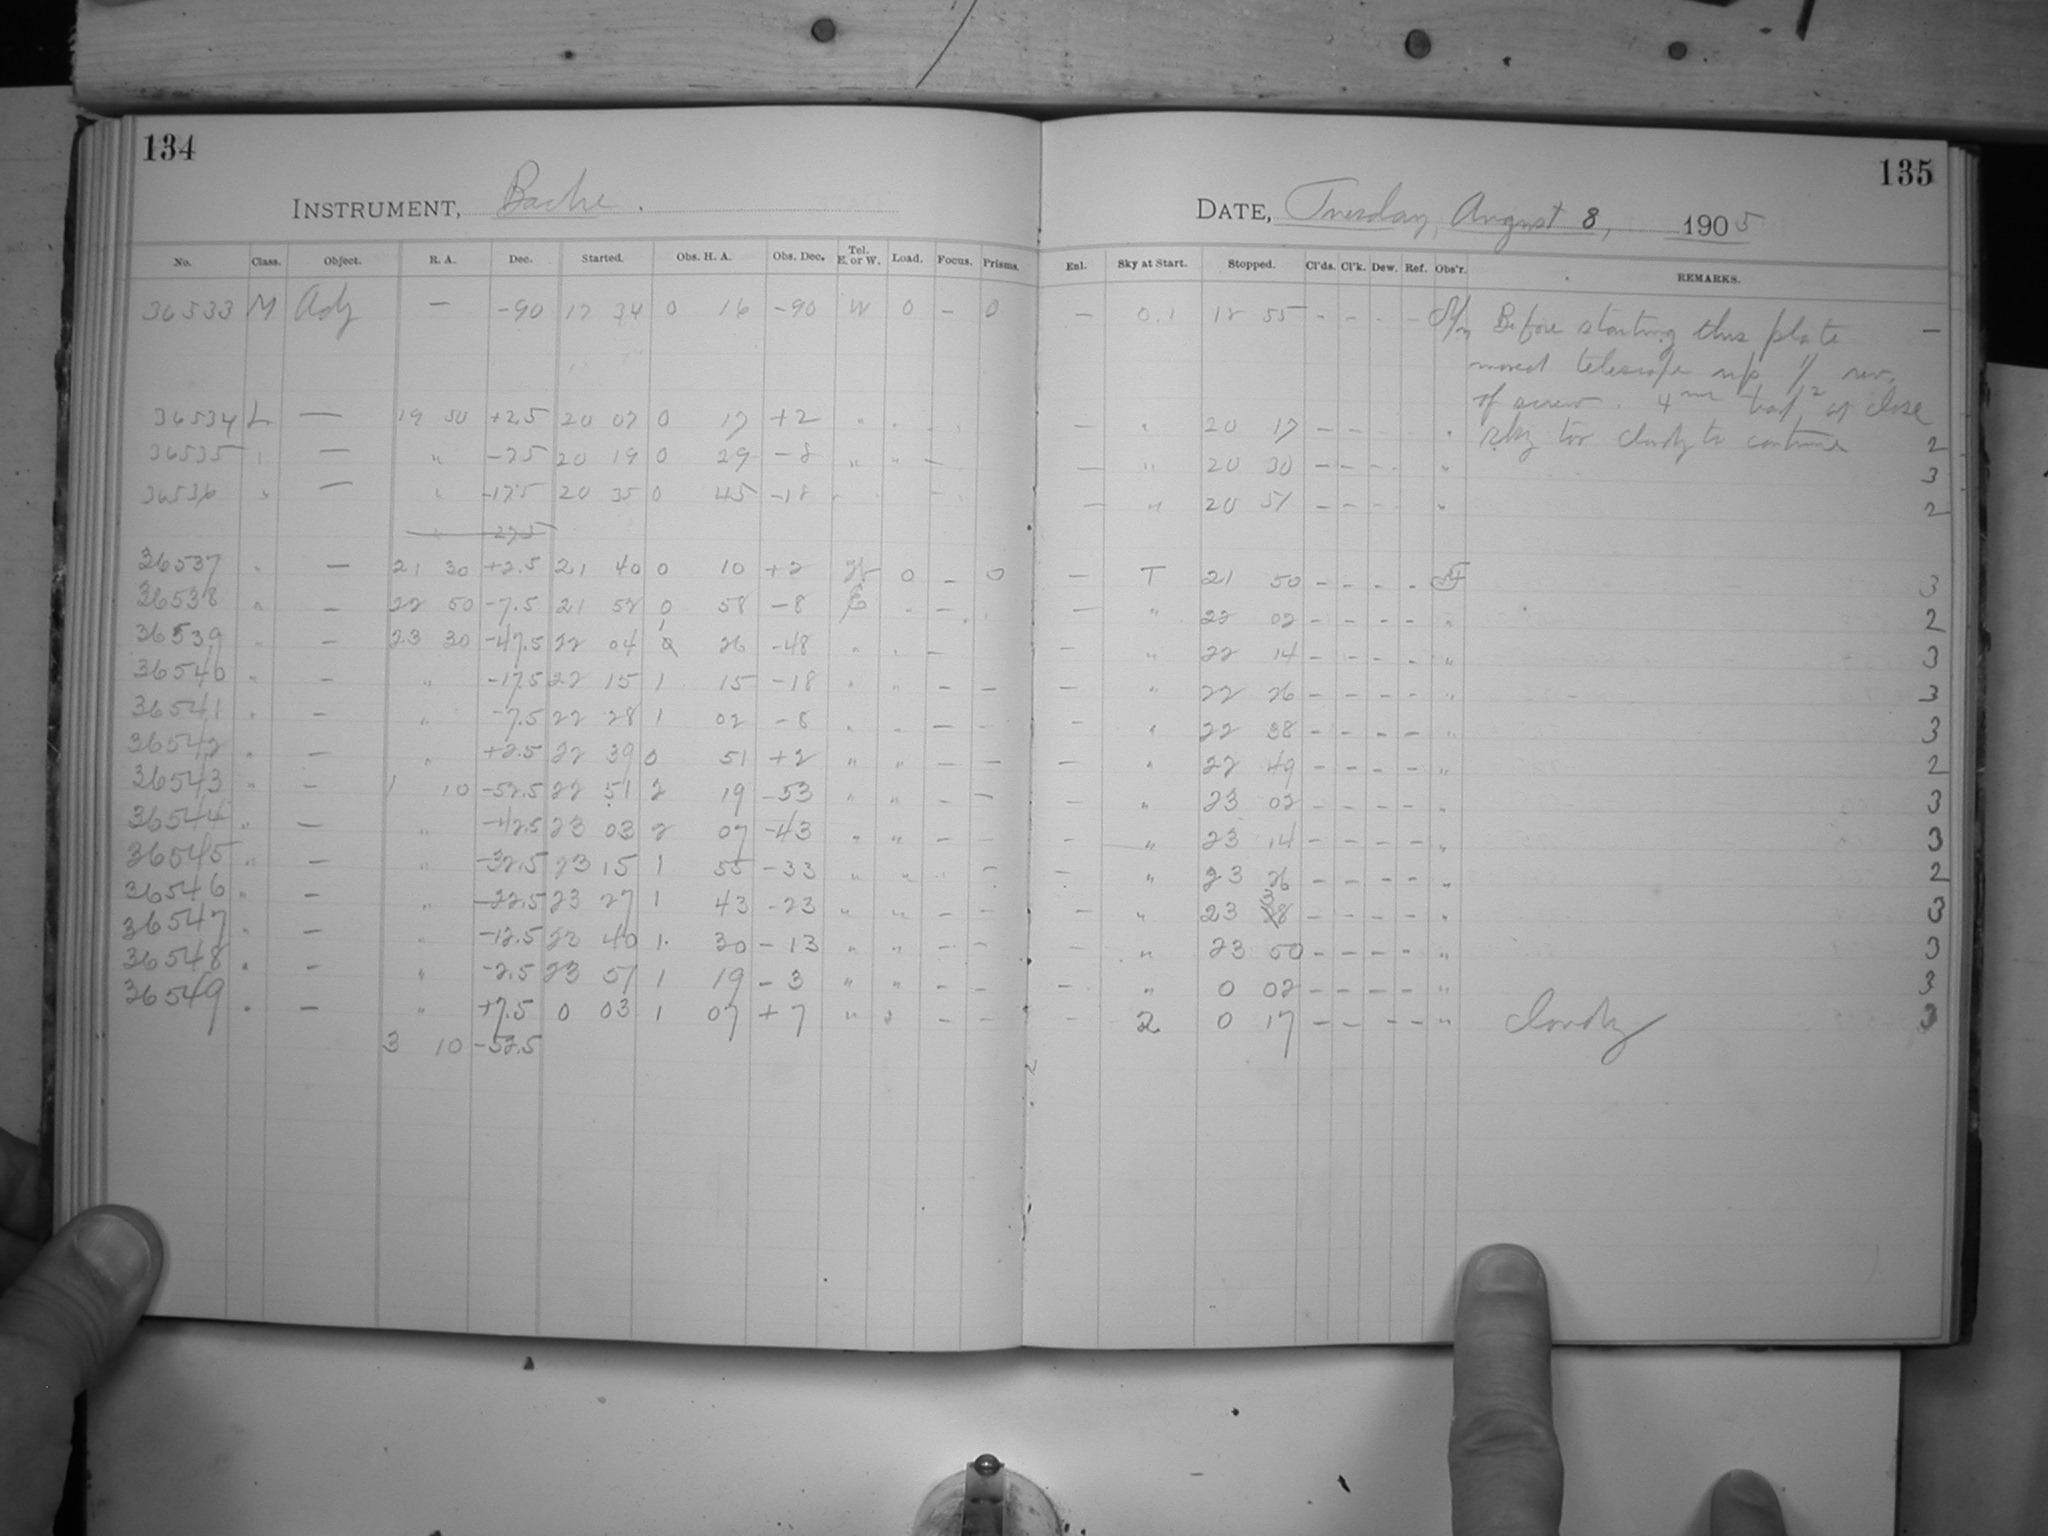 134
INSTRUMENT, Bache.
No. Class. Object. R. A. Dec. Started. Obs. H. A. Obs. Dec. Tel. E. or W. Load. Focus. Prisms.
36533 M Adj — -90 17 34 0 16 -90 W 0 - 0
36534 L — 19 50 +2.5 20 07 0 17 +2 " "
36535 " — " -7.5 20 19 0 29 -8 " " -
36536 " — " -17.5 20 35 0 45 -18
" -27.5
36537 " — 21 30 +2.5 21 40 0 10 +2 W 0 - 0
36538 " — 22 50 -7.5 21 52 0 58 -8 E " -
36539 " — 23 30 -47.5 22 04 1 26 -48 " " -
36540 " — " -17.5 22 15 1 15 -18 " " - -
36541 " — " -7.5 22 28 1 02 -8 " " - -
36542 " — " +2.5 22 39 0 51 +2 " " - -
36543 " — 1 10 -52.5 22 51 2 19 -53 " " - -
36544 " — " -42.5 23 03 2 07 -43 " " - -
36545 " — " -32.5 23 15 1 55 -33 " " - -
36546 " — " -22.5 23 27 1 43 -23 " " - -
36547 " — " -12.5 23 40 1 30 -13 " " - -
36548 " — " -2.5 23 51 1 19 -3 " " - -
36549 " — " +7.5 0 03 1 07 +7 " " - -
3 10 -52.5
135
DATE, Tuesday, August 8, 1905
Enl. Sky at Start. Stopped. Cl'ds. Cl'k. Dew. Ref. Obs'r. REMARKS.
— 0.1 17 55 - - - - Before starting this plate —
moved telescope up rev.
of screw. 4 at close
— " 20 17 - - - - " sky too cloudy to continue 2
— " 20 30 - - - - " 3
— " 20 51 - - - - " 2
— T 21 50 - - - - 3
— " 22 02 - - - - " 2
— " 22 14 - - - - " 3
— " 22 26 - - - - " 3
— " 22 38 - - - - " 3
— " 22 49 - - - - " 2
— " 23 02 - - - - " 3
— " 23 14 - - - - " 3
— " 23 26 - - - - " 2
— " 23 38 - - - - " 3
— " 23 50 - - - - " 3
— " 0 02 - - - - " 3
— 2 0 17 - - - - " Cloudy 3